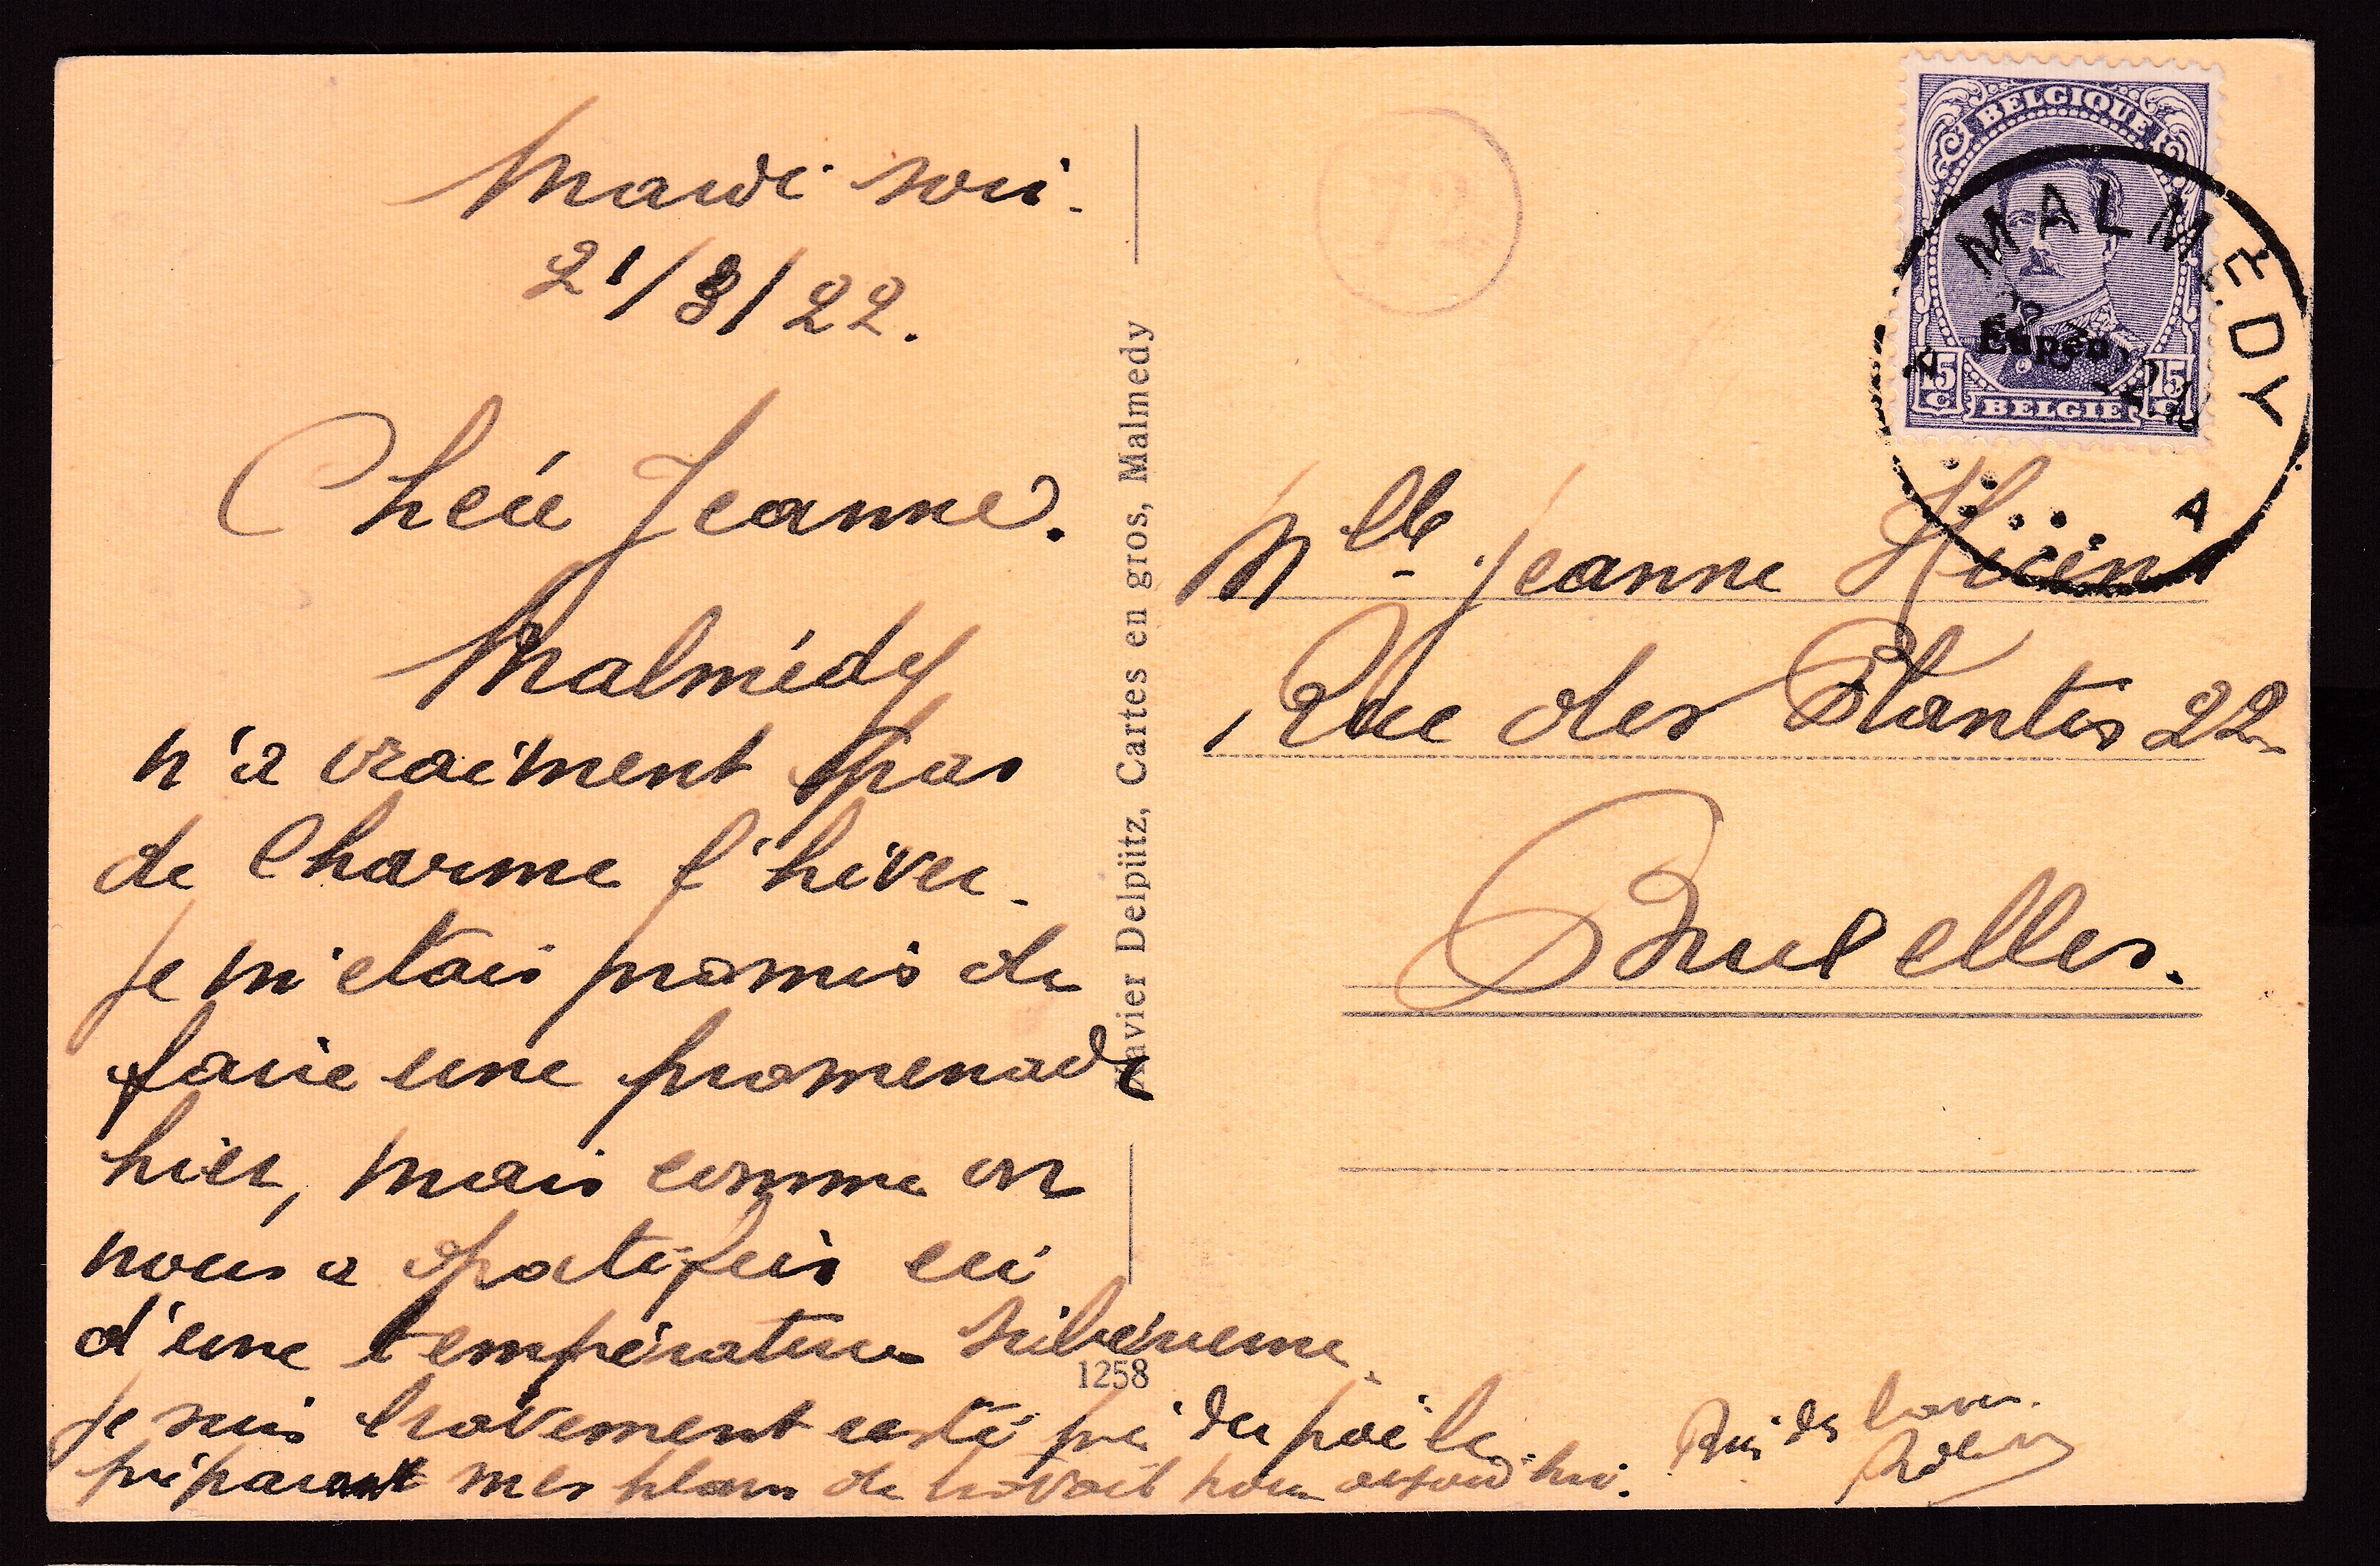 Mardi soir.
21/3/22.
Chère Jeanne.
Malmédy
n'a vraiment pas
de charme l'hiver.
Je m'etais promis de
faire une promenade
hier, mais comme on
nous a gratifiés ici
d'une température
Je suis bravement resté près du poële
préparant mes plans de travail pour aujourd'hui.
Xavier Delpütz, Cartes en gros, Malmedy
1258
BELGIQUE
Eupen
15 C
15 C
BELGIE
MALMEDY
A
72
Mlle Jeanne
Rue des Plantes 22
Bruxelles.